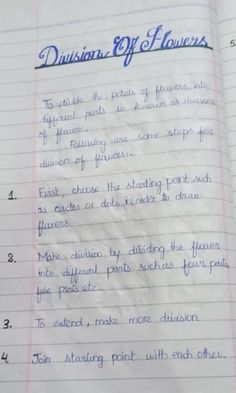 Division Of Flowers
To divide the petals of flowers into
different parts is known as division
of flowers.
Following are some steps for
division of flowers:-
1. First, choose the starting point such
as circles or dots, in order to draw
flowers.
2. Make division by dividing the flower
into different parts such as four parts,
five parts etc.
3. To extend, make more division
4. Join starting point with each other.
5